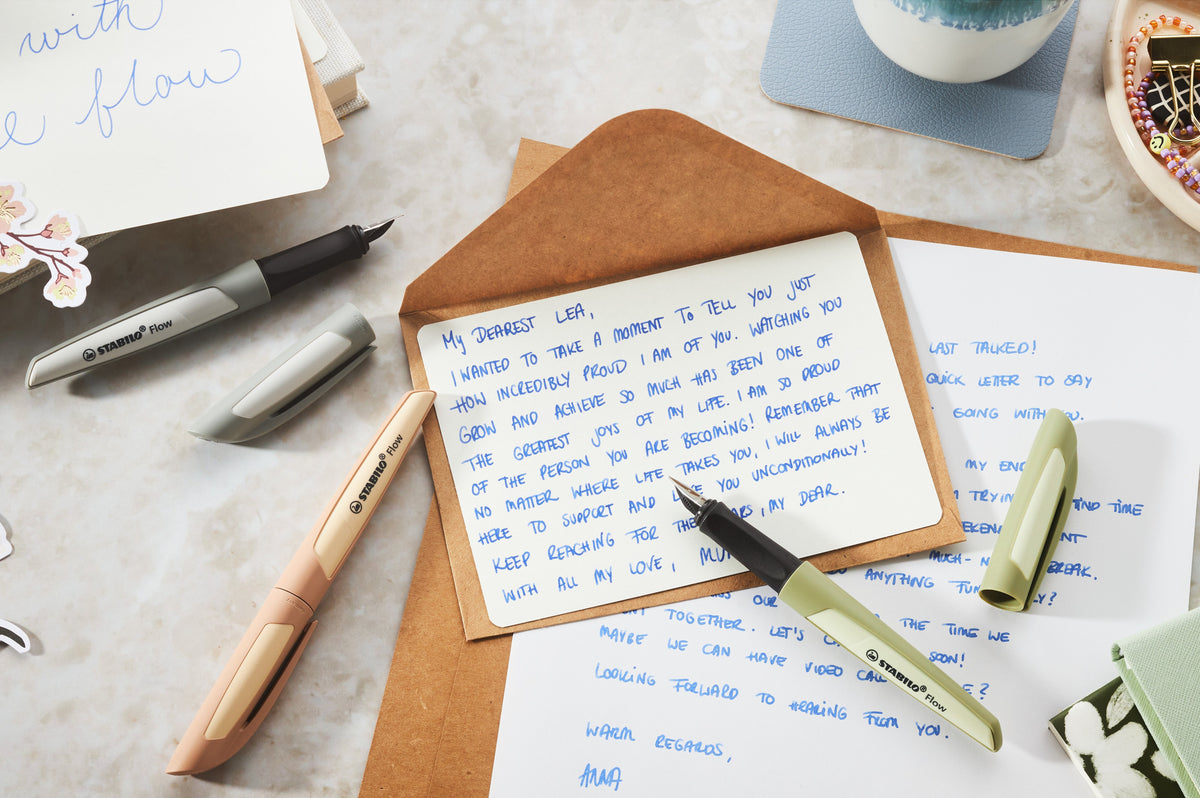 with
flow
STABILO® Flow
STABILO® Flow
My DEAREST LEA,
I WANTED TO TAKE A MOMENT TO TELL YOU JUST
HOW INCREDIBLY PROUD I AM OF YOU. WATCHING YOU
GROW AND ACHIEVE SO MUCH HAS BEEN ONE OF
THE GREATEST JOYS OF MY LIFE. I AM SO PROUD
OF THE PERSON YOU ARE BECOMING! REMEMBER THAT
NO MATTER WHERE LIFE TAKES YOU, I WILL ALWAYS BE
HERE TO SUPPORT AND YOU UNCONDITIONALLY!
KEEP REACHING FOR THE , MY DEAR.
WITH ALL MY LOVE,
LAST TALKED!
QUICK LETTER TO SAY
GOING WITH YOU.
MY
TIME
MUCH- BREAK.
ANYTHING
OUR
TOGETHER. LET'S THE TIME WE
MAYBE WE CAN HAVE VIDEO CALL SOON!
LOOKING FORWARD TO HEARING FROM YOU.
WARM REGARDS,
ANNA
STABILO® Flow